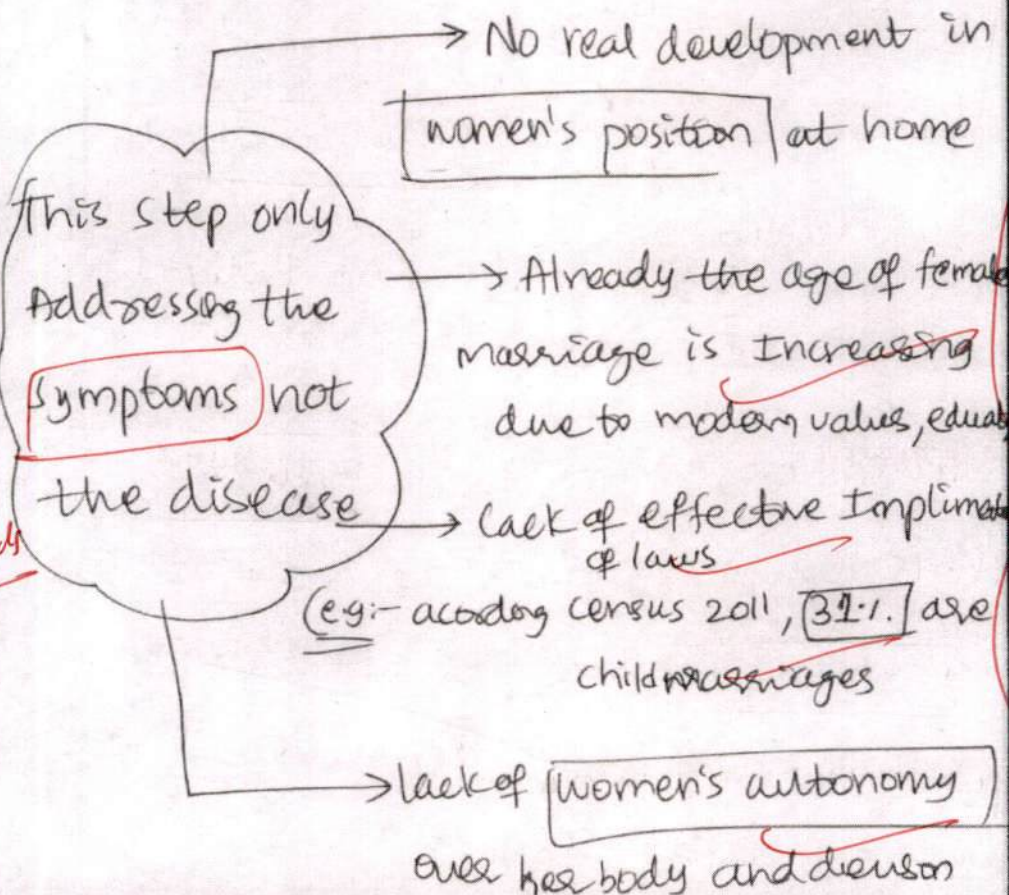 This step only
Addressing the
symptoms not
the disease
→ No real development in
women's position at home
→ Already the age of female
marriage is Increasing
due to modern values, educat
→ Lack of effective Implimat
of laws
(eg:- acording census 2011, 31%. are
child marriages
→ lack of women's autonomy
over her body and